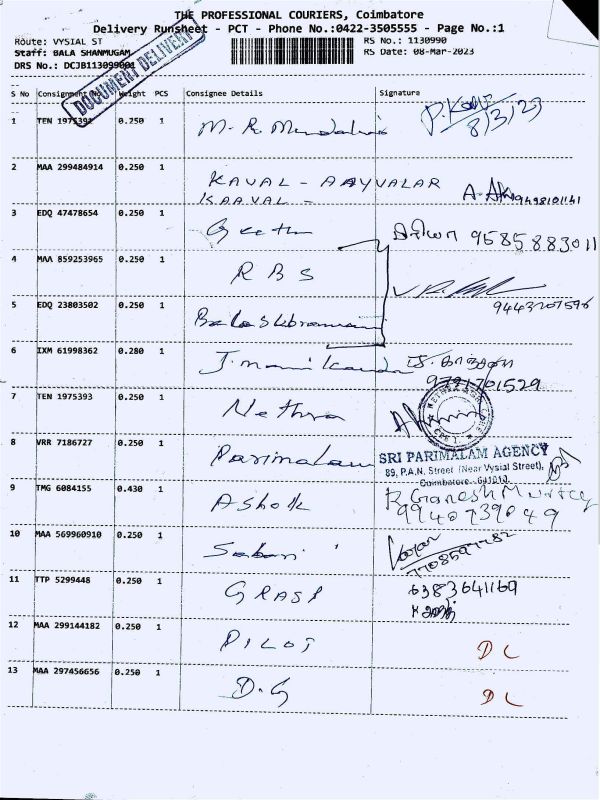 THE PROFESSIONAL COURIERS, Coimbatore
Delivery Runsheet - PCT - Phone No.:0422-3505555 - Page No.:1
Route: VYSIAL ST
RS No.: 1130990
Staff: BALA SHANMUGAM
RS Date: 08-Mar-2023
DRS No.: DCJB113099001
DOCUMENT DELIVERY
S No Consignment No Weight PCS Consignee Details Signature
1 TEN 1975391 0.250 1
8/3/23
2 MAA 299484914 0.250 1 KAVAL - AAYVALAR
KAAVAL - 9498101141
3 EDQ 47478654 0.250 1 Geetha 9585883011
4 MAA 859253965 0.250 1 RBS
9443207596
5 EDQ 23803502 0.250 1 Balasubramani
6 IXM 61998362 0.280 1 J. Manikandan
9791701529
7 TEN 1975393 0.250 1 Nethra
8 VRR 7186727 0.250 1 Parimalam
SRI PARIMALAM AGENCY
89, P.A.N. Street (Near Vysial Street),
Coimbatore - 641010.
9 TMG 6084155 0.430 1 Ashok R. Ganesh Murthy
9940739049
10 MAA 569960910 0.250 1 Sabari
11 TTP 5299448 0.250 1 GRASP 6383641169
12 MAA 299144182 0.250 1 PILOT DL
13 MAA 297456656 0.250 1 D.G DL